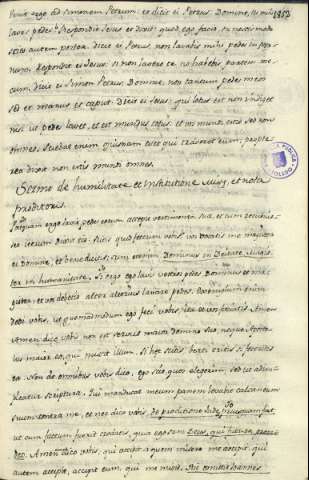 Venit ergo ad Simonem Petrum. et dicit ei Petrus. Domine, tu mihi
lavas pedes? Respondit Iesus et dixit quod ego facio tu nescis modo
scies autem postea. dicit ei Petrus, non lavabis mihi pedes in aeter-
num. Respondit ei Iesus. si non lavero te no habebis partem me-
cum, dicit ei Simon Petrus, Domine, non tantum pedes meos
sed et manus et caput. Dicit ei Iesus, qui lotus est non indiget
nisi ut pedes lavet, et est mundus totus. et vos mundi estis sed non
omnes. Sciebat enim quisnam esset qui traderet eum, propte-
rea dixit non estis mundi omnes.
Sermo de humilitate et institutione et nota
proditoris.
Postquam ergo lavit pedes eorum accepit vestimenta sua, et cum recubuis-
set iterum dixit eis. scitis quid fecerim vobis? vos vocatis me magister
et Domine, et benedicitis. sum etenim Dominus in Deitate Magis-
ter in humanitate. Si ergo ego lavi vestros pedes Dominus et ma-
gister. et vos debetis alter alterius lavare pedes. Exemplum enim
dedi vobis, ut quemadmodum ego feci vobis, ita et vos faciatis. Amen
Amen dico vobis non est servus maior Domino suo, neque Aposto-
lus maior eo, qui misit illum. Si haec scitis beati eritis si feceritis
ea. Non de omnibus vobis dico, ego scio quos elegerim, sed ut adim-
pleatur scriptura. Qui manducat meum panem levabit calcaneum
suum contra me, et nec dico vobis de proditione Iudae priusquam fiat
ut cum factum fuerit credatis, quia ego sum Deus,
Deo. Amen dico vobis, qui accipit quem misero me accipit, qui
autem accipit, accipit eum, qui me misit.
BIBLIOTECA PUBLICA
TOLEDO